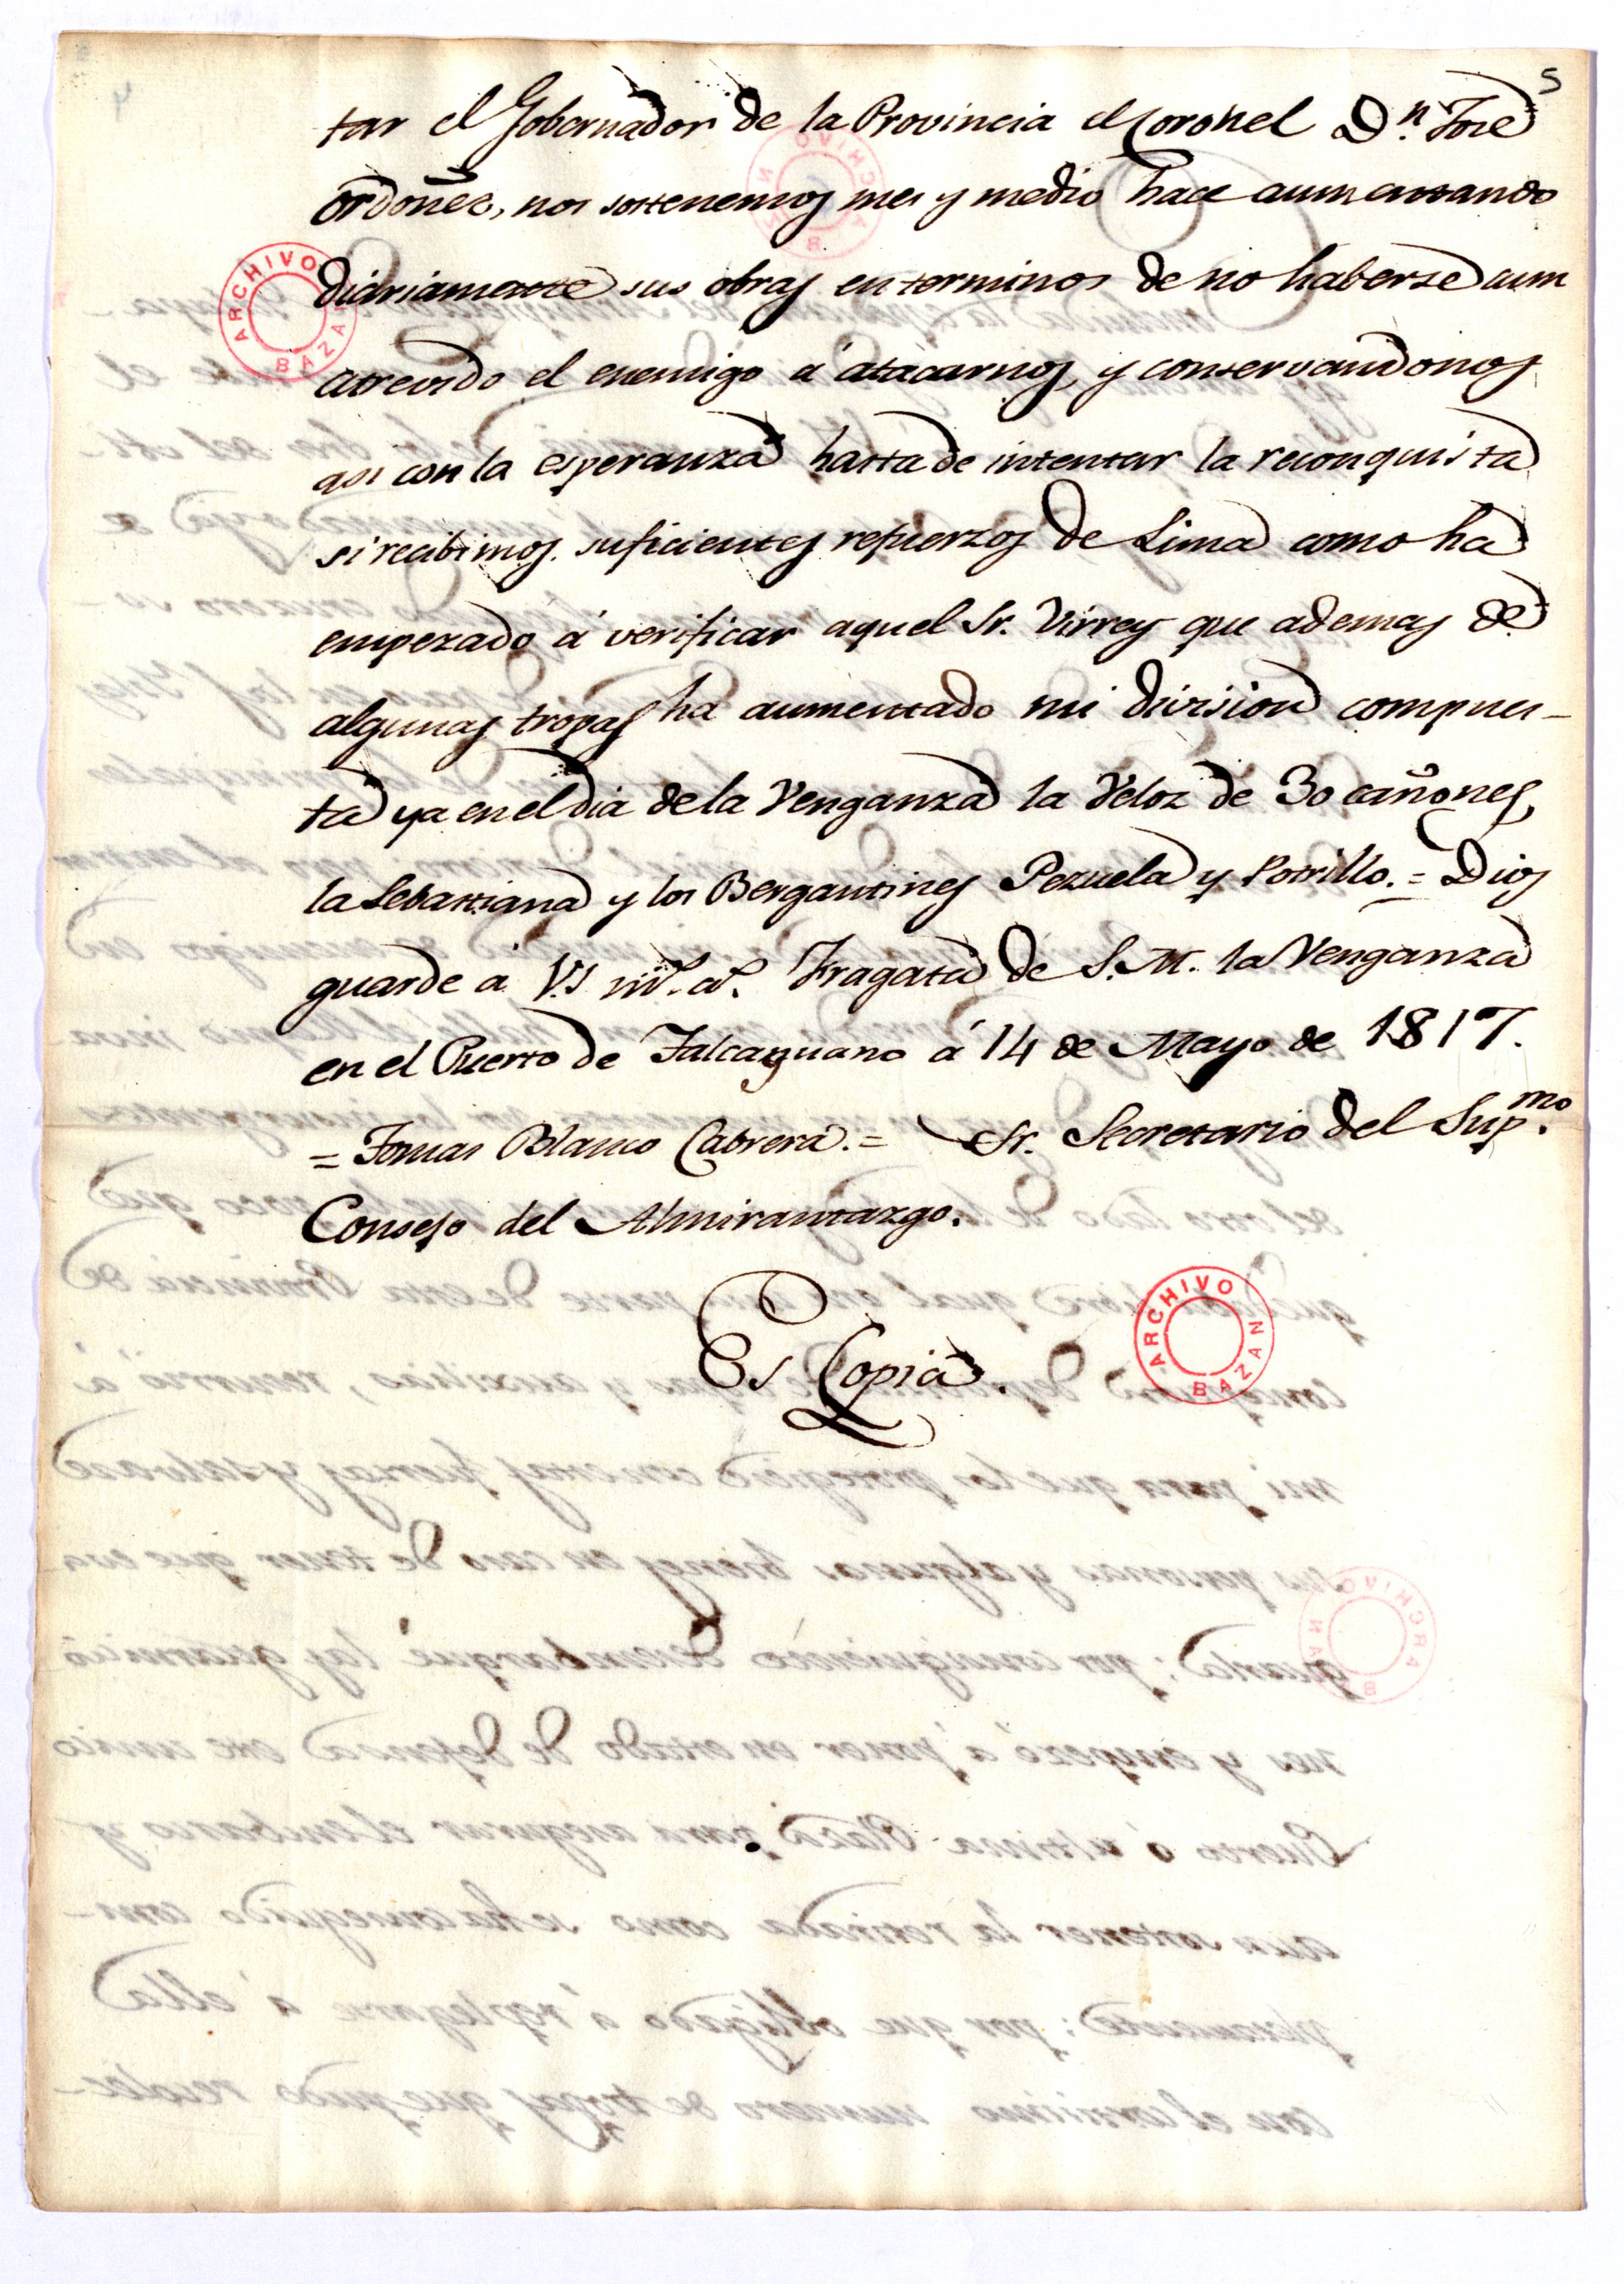 5
tar el Gobernador de la Provincia el Coronel D.n José
Ordoñez, nos sostenemos mes y medio hace aumentando
diariamente sus obras en terminos de no haberse aum
atrevido el enemigo á atacarnos, y conservandonos
asi con la esperanza hasta de intentar la reconquista
si recibimos suficientes refuerzos de Lima como ha
empezado á verificar aquel Sr. Virrey que ademas de
algunas tropas ha aumentado mi division compues-
ta ya en el dia de la Venganza la Veloz de 30 cañones,
la Sebastiana y los Bergantines Pezuela y Potrillo. = Dios
guarde á V.S m.s a.s Fragata de S. M. la Venganza
en el Puerto de Talcaguano á 14 de Mayo de 1817.
= Tomas Blanco Cabrera. = Sr. Secretario del Sup.mo
Consejo del Almirantazgo.
Es Copia.
ARCHIVO BAZAN
ARCHIVO BAZAN